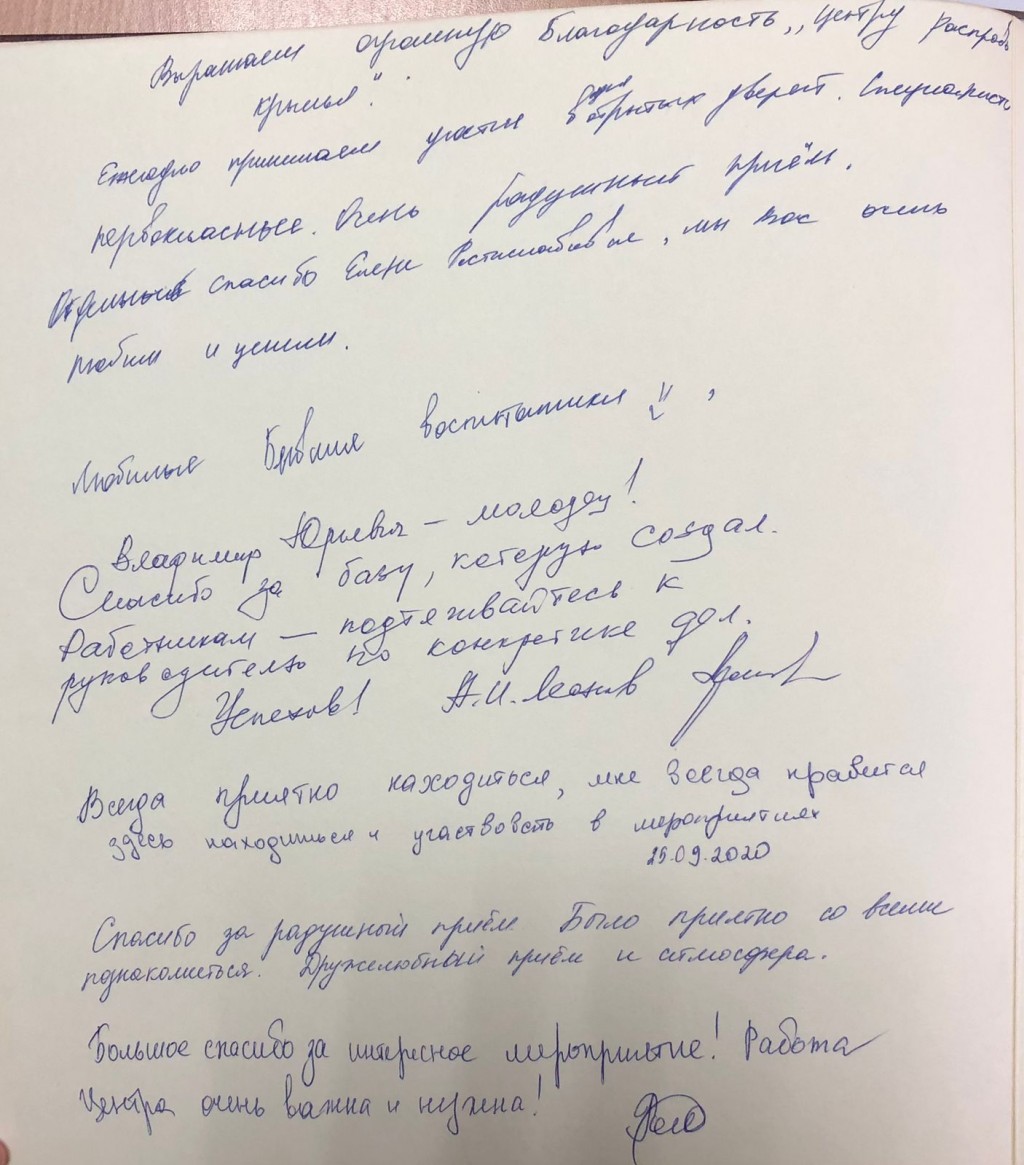 Выражаем огромную Благодарность „Центру Расправь
крылья".
Ежегодно принимаем участие в дни открытых дверей. Специалисты
первоклассные. Очень радушный приём.
Отдельное спасибо Елене Ростиславовне, мы вас очень
любим и ценим.
Любимые Бывшие воспитанники !!
Владимир Юрьевич – молодец!
Спасибо за базу, которую создал.
Работникам – подтягивайтесь к
руководителю по конкретике дел.
Успехов! А.И.
Всегда приятно находиться, мне всегда нравится
здесь находиться и участвовать в мероприятиях
25.09.2020
Спасибо за радушный приём Было приятно со всеми
познакомиться. Дружелюбный приём и атмосфера.
Большое спасибо за интересное мероприятие! Работа
Центра очень важна и нужна!